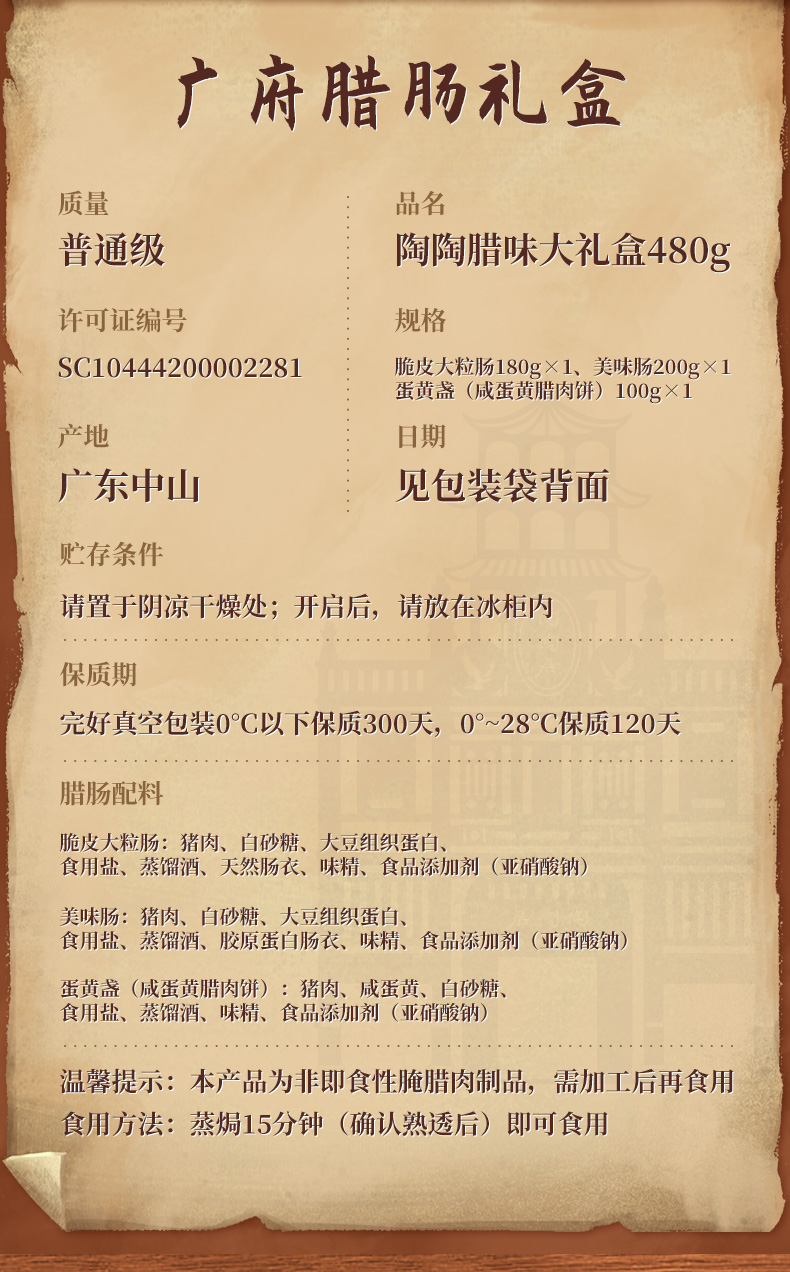 广府腊肠礼盒
质量
普通级
品名
陶陶腊味大礼盒480g
许可证编号
SC10444200002281
规格
脆皮大粒肠180g×1、美味肠200g×1
蛋黄盏（咸蛋黄腊肉饼）100g×1
产地
广东中山
日期
见包装袋背面
贮存条件
请置于阴凉干燥处；开启后，请放在冰柜内
保质期
完好真空包装0°C以下保质300天，0°~28°C保质120天
腊肠配料
脆皮大粒肠：猪肉、白砂糖、大豆组织蛋白、
食用盐、蒸馏酒、天然肠衣、味精、食品添加剂（亚硝酸钠）
美味肠：猪肉、白砂糖、大豆组织蛋白、
食用盐、蒸馏酒、胶原蛋白肠衣、味精、食品添加剂（亚硝酸钠）
蛋黄盏（咸蛋黄腊肉饼）：猪肉、咸蛋黄、白砂糖、
食用盐、蒸馏酒、味精、食品添加剂（亚硝酸钠）
温馨提示：本产品为非即食性腌腊肉制品，需加工后再食用
食用方法：蒸焗15分钟（确认熟透后）即可食用